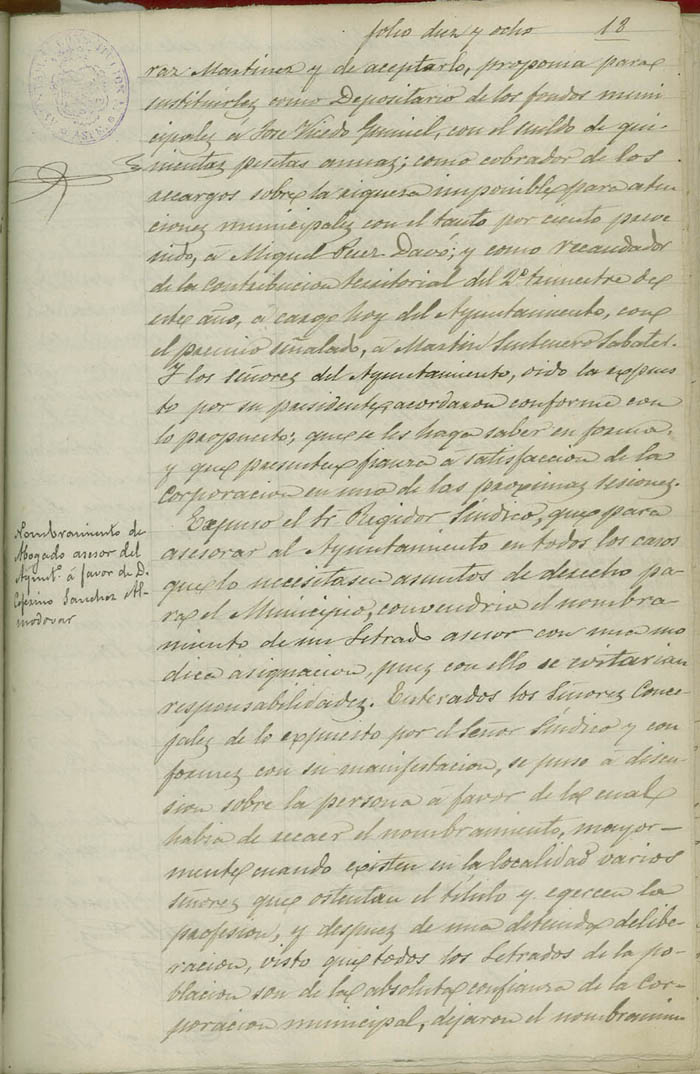 folio diez y ocho 18
raz Martinez y de aceptarlo, proponia para
sustituirlez como Depositario de los fondos muni
cipalez á Jose Uledo Gumiel, con el sueldo de qui-
nientaz pesetas anuaz; como cobrador de los
recargos sobre la riqueza imponible para aten
cionez municipalez con el tanto por ciento preve
nido, á Miguel Perez Davó; y como recaudador
de la contribucion territorial del 2º trimestre de
este año, á cargo hoy del Ayuntamiento, con
el premio señalado, á Martin Sabater.
Y los señorez del Ayuntamiento, oido lo expues
to por su presidente acordaron conforme con
lo propuesto; que se les haga saber en forma;
y que presenten fianza á satisfaccion de la
Corporacion en una de las proximaz sesionez.
Nombramiento de
Abogado asesor del
Ayuntº á favor de D.
Ceferino Sanchez Al-
modovar
Expuso el Sr. Regidor Síndico, que para
asesorar al Ayuntamiento en todos los casos
que lo necesitasen asuntos de derecho pa-
ra el Municipio, convendria el nombra-
miento de un Letrado asesor con una mo
dica asignacion, puez con ello se evitarian
responsabilidadez. Enterados los Señorez Conce-
jalez de lo expuesto por el Señor Síndico y con
formez con su manifestacion, se puso á discu-
sion sobre la persona á favor de la cual
habia de recaer el nombramiento, mayor-
mente cuando existen en la localidad varios
señorez que ostentan el título y egercen la
profesion, y despuez de una detenida delibe-
racion, visto que todos los Letrados de la po-
blacion son de la absoluta confianza de la Cor-
poracion municipal, dejaron el nombramien